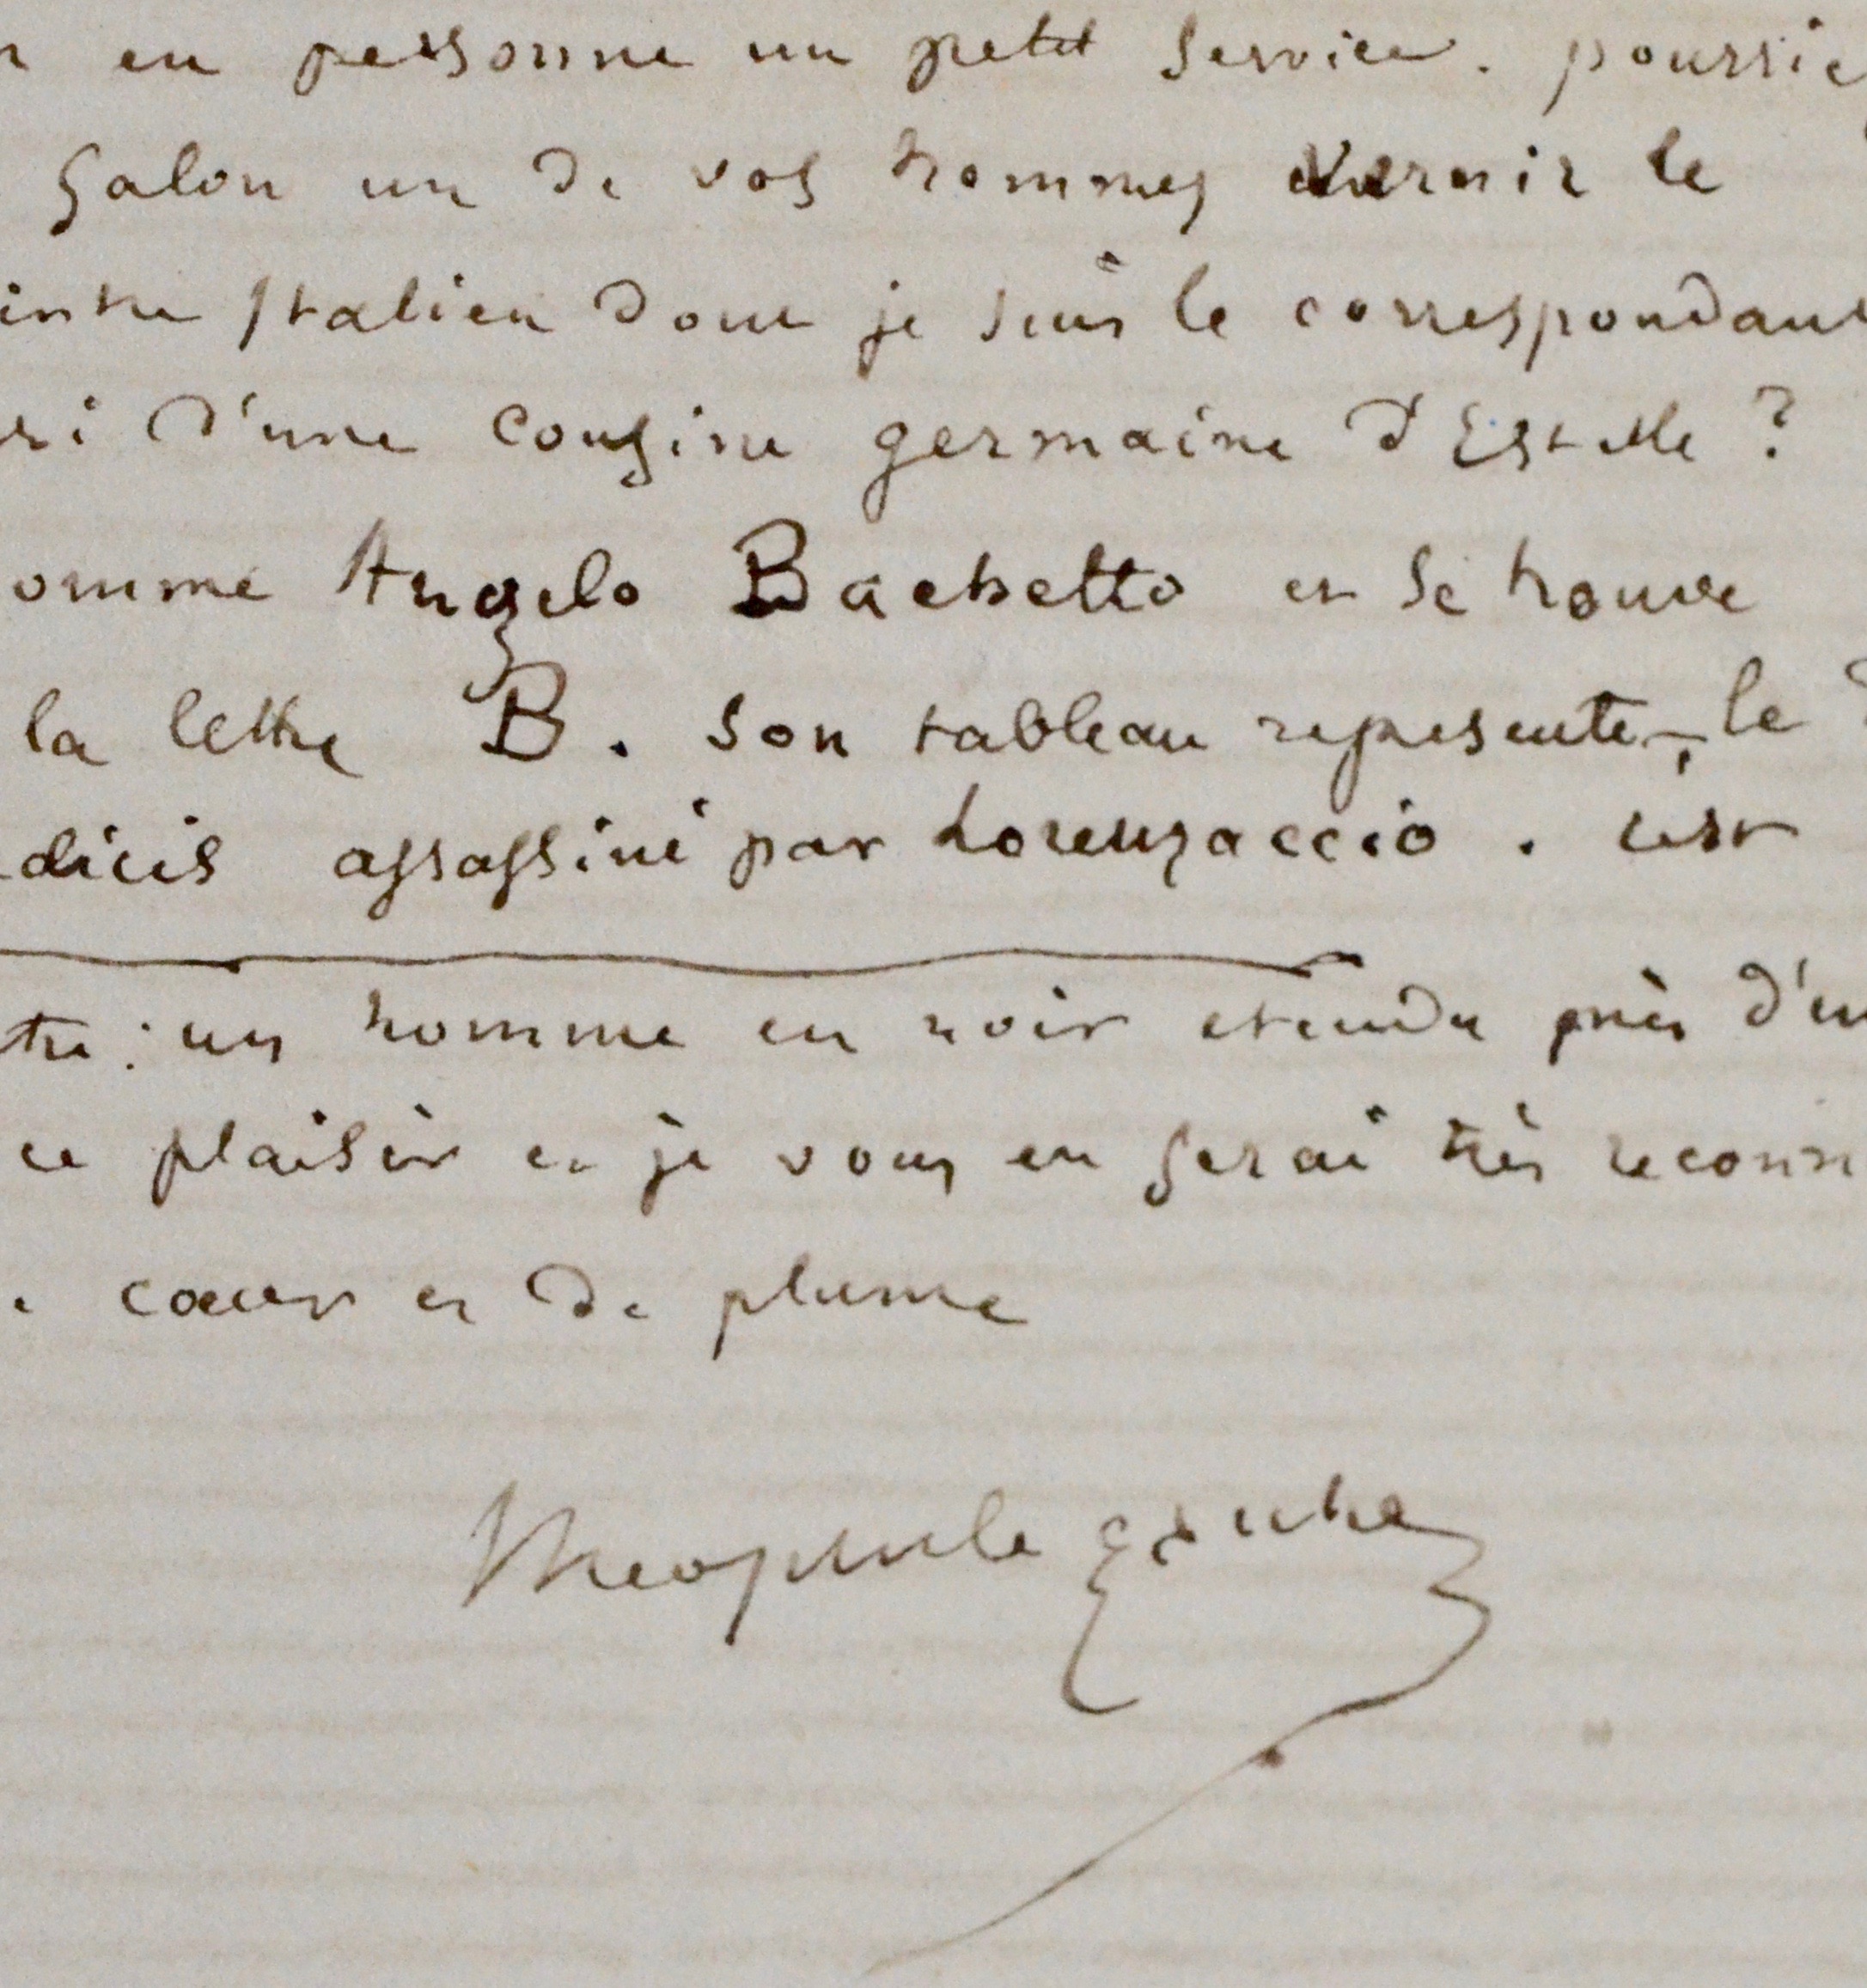 en personne un petit service. pourrie
Salon un de vos hommes vernir le
intre Italien dont je suis le correspondant
ri d'une cousine germaine d'Estelle ?
omme Angelo Bachetto et se trouve
la lettre B. Son tableau represente, le
dicis assassiné par Lorenzaccio. cest
tre : un homme en noir etendu près d'un
ce plaisir et je vous en serai très reconn
coeur et de plume
Theophile Gautier